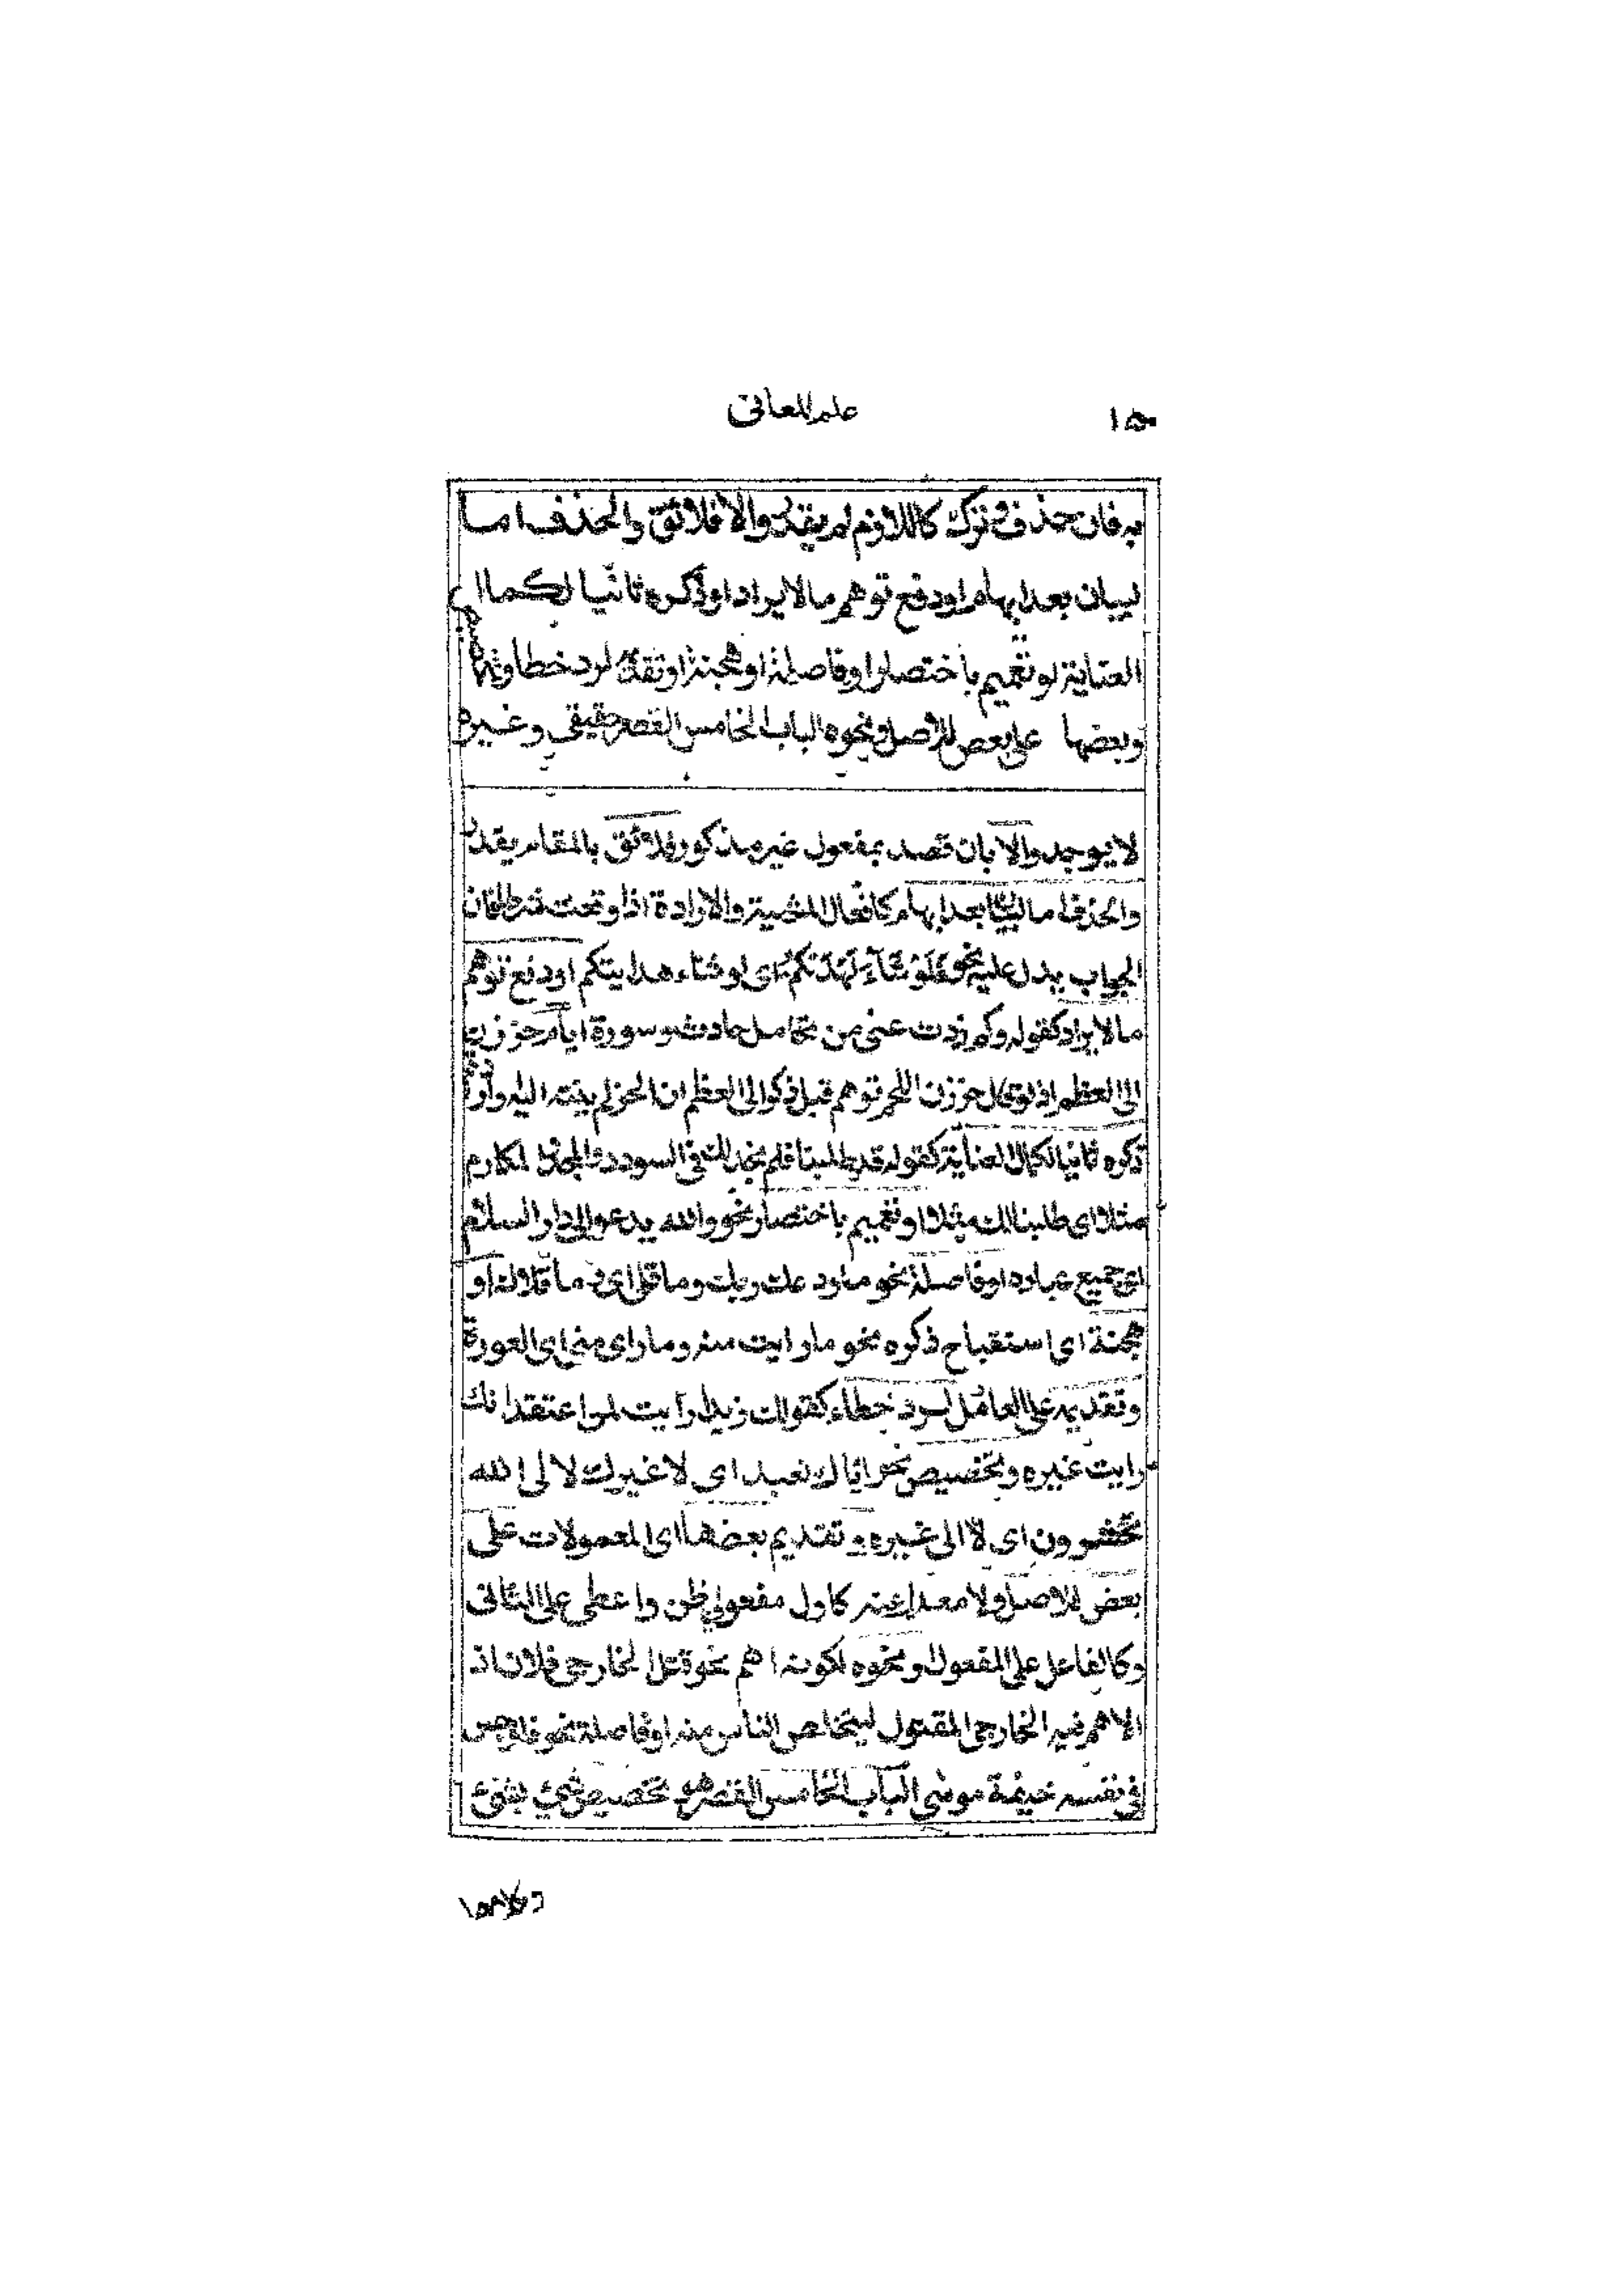 ١٥٠
علم المعانى
به فان حذف وترك كاللازم لم يقدر والا فلائق والحذف اما
لبيان بعد ابهام او دفع توهم ما لا يراد او ذكره ثانيا لكمال
العناية او تعميم باختصار او فاصلة او هجنة او تقدمه لرد خطا او
وبعضها على بعض للاصل ونحوه الباب الخامس القصر حقيقي وغيره
لا يوجد والا بان قصد بمفعول غير مذكور فلائق بالمقام يقدر
والحذف اما لبيان بعد ابهام كافعال المشية والارادة اذا وقعت شرطا فان
الجواب يدل عليه نحو فلو شاء لهدكم اى لو شاء هدايتكم او دفع توهم
ما لا يراد كقوله وكم ذدت عنى من تحامل حادث وسورة ايام حززن
الى العظم اذ لو قال حززن اللحم توهم قبل ذكر الى العظم ان الحز لم ينته اليه واذا
ذكره ثانيا لكمال العناية كقوله قد طلبنا فلم نجد لك فى السودد والمجد والمكارم
مثلا اى طلبنا لك مثلا او تعميم باختصار نحو والله يدعو الى دار السلام
اى جميع عباده او فاصلة نحو ما ودعك ربك وما قلى اى ما قلاك او
هجنة اى استقباح ذكره نحو ما رايت منه وما راى منى اى العورة
وتقديمه على العامل لرد خطاء كقولك زيدا رايت لمن اعتقد انك
رايت غيره وتخصيص نحو اياك نعبد اى لا غيرك لا لى الله
تحشرون اى لا الى غيره وتقديم بعضها اى المعمولات على
بعض للاصل ولا معدل عنه كاول مفعولي ظن واعطى على الثانى
وكالفاعل على المفعول او نحوه لكونه اهم نحو قتل الخارجى فلان اذ
الاهم فيه الخارجى المقتول ليتخلص الناس منه او فاصلة نحو فاوجس
فى نفسه خيفة موسى الباب الخامس القصر هو تخصيص شيء بشيء